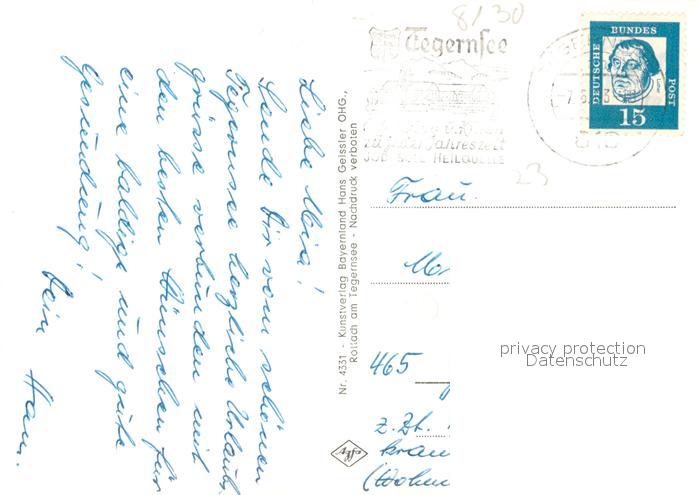 Liebe Mia!
Sende Dir vom schönen
Tegernsee herzliche Urlaubs
grüsse verbunden mit
den besten Wünschen für
eine baldige und gute
Gesundung!
Dein Hans.
Nr. 4331 - Kunstverlag Bayernland Hans Geissler OHG.,
Rottach am Tegernsee - Nachdruck verboten
Agfa
8/30
Tegernsee
zu jeder Jahreszeit
JOD HEILQUELLE
DEUTSCHE BUNDES POST
15
23
Frau
465
z. Zt.
(Wohn
privacy protection
Datenschutz